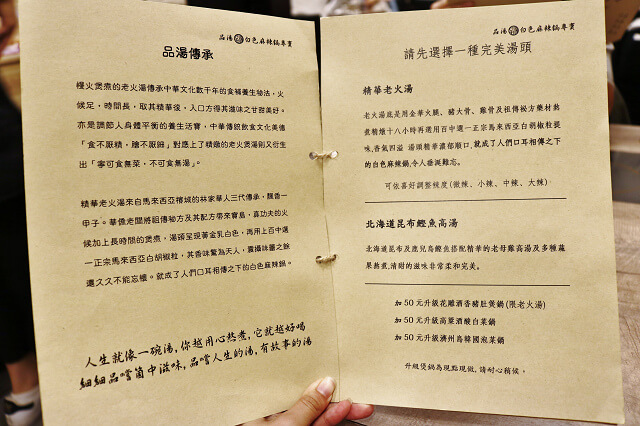 品湯 白色麻辣鍋專賣
品湯傳承
慢火煲煮的老火湯傳承中華文化數千年的食補養生秘法,火
候足,時間長,取其精華後,入口方得其滋味之甘甜美好。
亦是調節人身體平衡的養生活寶,中華傳統飲食文化美德
「食不厭精,膾不厭細」對應上了精緻的老火煲湯則又衍生
出「寧可食無菜,不可食無湯」。
精華老火湯來自馬來西亞檳城的林家華人三代傳承,飄香一
甲子。華僑老闆將祖傳秘方及其配方帶來寶島,真功夫的火
候加上長時間的煲煮,湯頭呈現黃金乳白色,再用上百中選
一正宗馬來西亞白胡椒粒,其香味驚為天人,震攝味蕾之餘
還久久不能忘懷。就成了人們口耳相傳之下的白色麻辣鍋。
人生就像一碗湯,你越用心熬煮,它就越好喝
細細品嚐箇中滋味,品嚐人生的湯,有故事的湯
品湯 白色麻辣鍋專賣
請先選擇一種完美湯頭
精華老火湯
老火湯底是用金華火腿、豬大骨、雞骨及祖傳秘方藥材熬
煮精燉十八小時再選用百中選一正宗馬來西亞白胡椒粒提
味,香氣四溢 湯頭精華濃郁順口,就成了人們口耳相傳之下
的白色麻辣鍋,令人垂涎難忘。
可依喜好調整辣度(微辣、小辣、中辣、大辣)
北海道昆布鰹魚高湯
北海道昆布及鹿兒島鰹魚搭配精華的老母雞高湯及多種蔬
果熬煮,清甜的滋味非常柔和完美。
加50元升級花雕酒香豬肚煲鍋(限老火湯)
加50元升級高粱酒酸白菜鍋
加50元升級濟州島韓國泡菜鍋
升級煲鍋為現點現做,請耐心稍候。